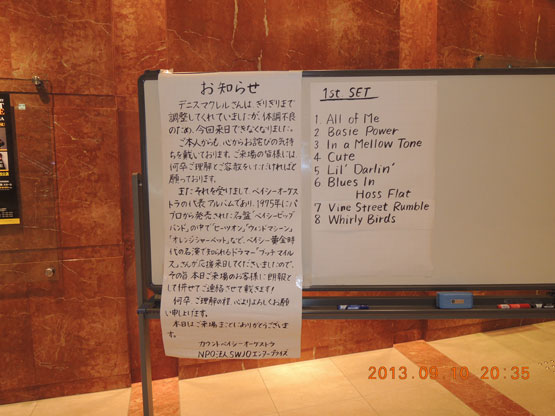 お知らせ
デニス・マクレルさんは、ぎりぎりまで
調整してくれていましたが、体調不良
のため、今回来日できなくなりました。
ご本人からも、心からお詫びの気持
ちを戴いております。ご来場の皆様には
何卒ご理解とご容赦をいただければと
願っております。
またそれを受けまして、ベイシーオーケス
トラの代表アルバムであり、1975年にパ
ブロから発売された名盤“ベイシービッグ
バンド”の中で“ヒーツオン”“ウィンドマシーン”
“オレンジシャーベット”など、ベイシー黄金時
代の名演で知られるドラマー“ブッチ マイル
ス”さんが応援来日してくださいましたので、
その旨本日ご来場のお客様に朗報と
して併せてご連絡させて戴きます!
何卒ご理解の程、心よりよろしくお願
い申し上げます。
本日はご来場まことにありがとうございま
す。
カウントベイシーオーケストラ
NPO法人SWJOエンタープライズ
1st SET
1 All of Me
2 Basie Power
3 In a Mellow Tone
4 Cute
5 Lil' Darlin'
6 Blues In
Hoss Flat
7 Vine Street Rumble
8 Whirly Birds
2013.09.10 20:35